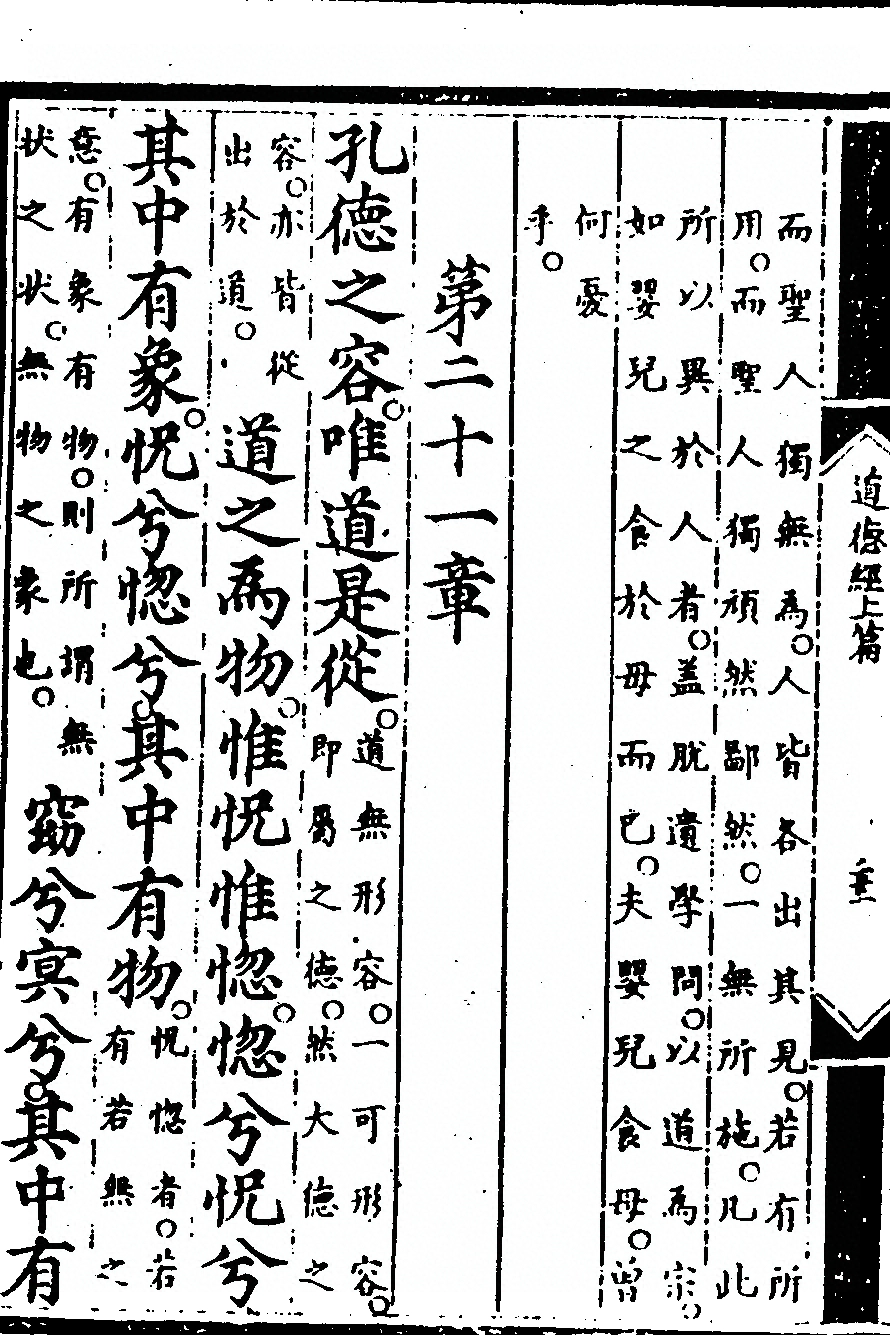 道德經上篇
而聖人獨無為。人皆各出其見。若有所
用。而聖人獨頑然鄙然。一無所施。凡此
所以異於人者。蓋脫遺學問。以道為宗。
如嬰兒之食於母而已。夫嬰兒食母。曾
何憂
乎。
第二十一章
孔德之容。唯道是從。
道無形容。一可形容。
即屬之德。然大德之
容。亦皆從
出於道。
道之為物。惟怳惟惚。惚兮怳兮
其中有象。怳兮惚兮。其中有物。
怳惚者。若
有若無之
意。有象有物。則所謂無
狀之狀。無物之象也。
窈兮冥兮。其中有